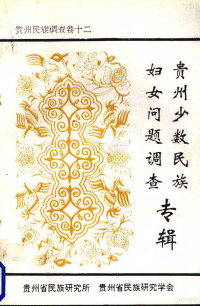 贵州民族调查卷十二
贵州少数民族
妇女问题调查
专辑
贵州省民族研究所 贵州省民族研究学会